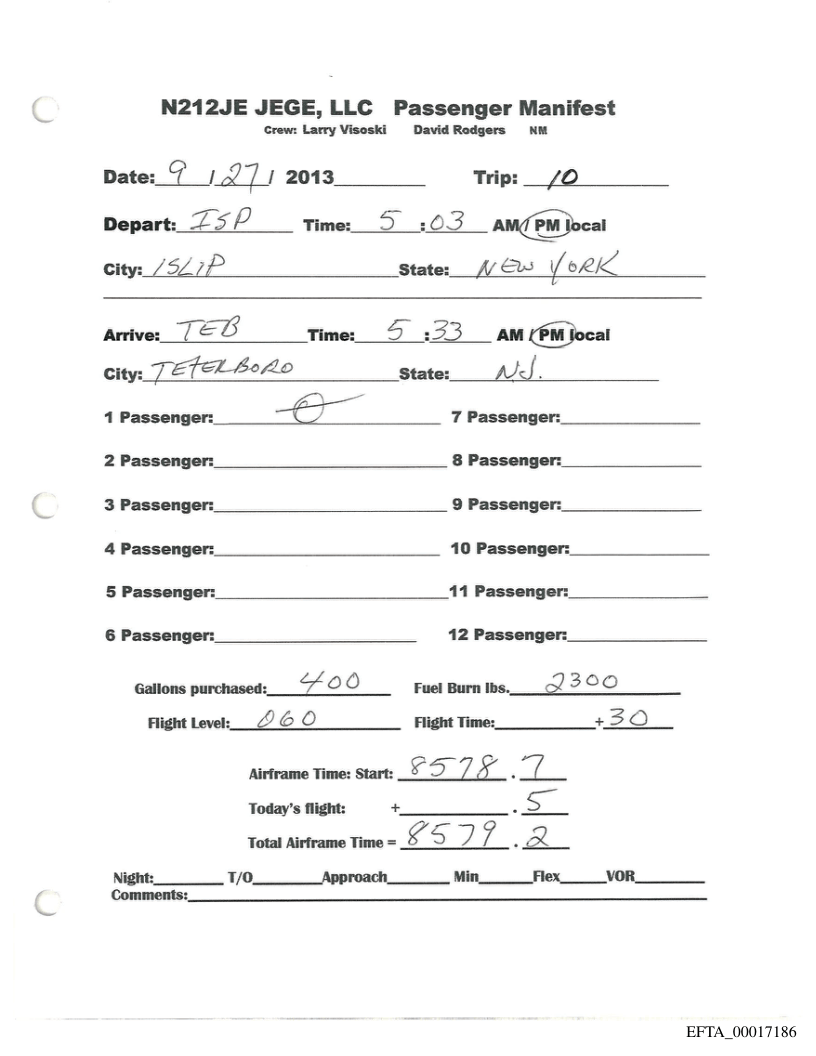 N212JE JEGE, LLC Passenger Manifest
Crew: Larry Visoski David Rodgers NM
Date: 9 / 27 / 2013 Trip: 10
Depart: ISP Time: 5 : 03 AM / PM local
City: ISLIP State: NEW YORK
Arrive: TEB Time: 5 : 33 AM / PM local
City: TETERBORO State: NJ.
1 Passenger: 0 7 Passenger:
2 Passenger: 8 Passenger:
3 Passenger: 9 Passenger:
4 Passenger: 10 Passenger:
5 Passenger: 11 Passenger:
6 Passenger: 12 Passenger:
Gallons purchased: 400 Fuel Burn lbs. 2300
Flight Level: 060 Flight Time: +30
Airframe Time: Start: 8578 . 7
Today's flight: + . 5
Total Airframe Time = 8579 . 2
Night: T/O Approach Min Flex VOR
Comments:
EFTA_00017186